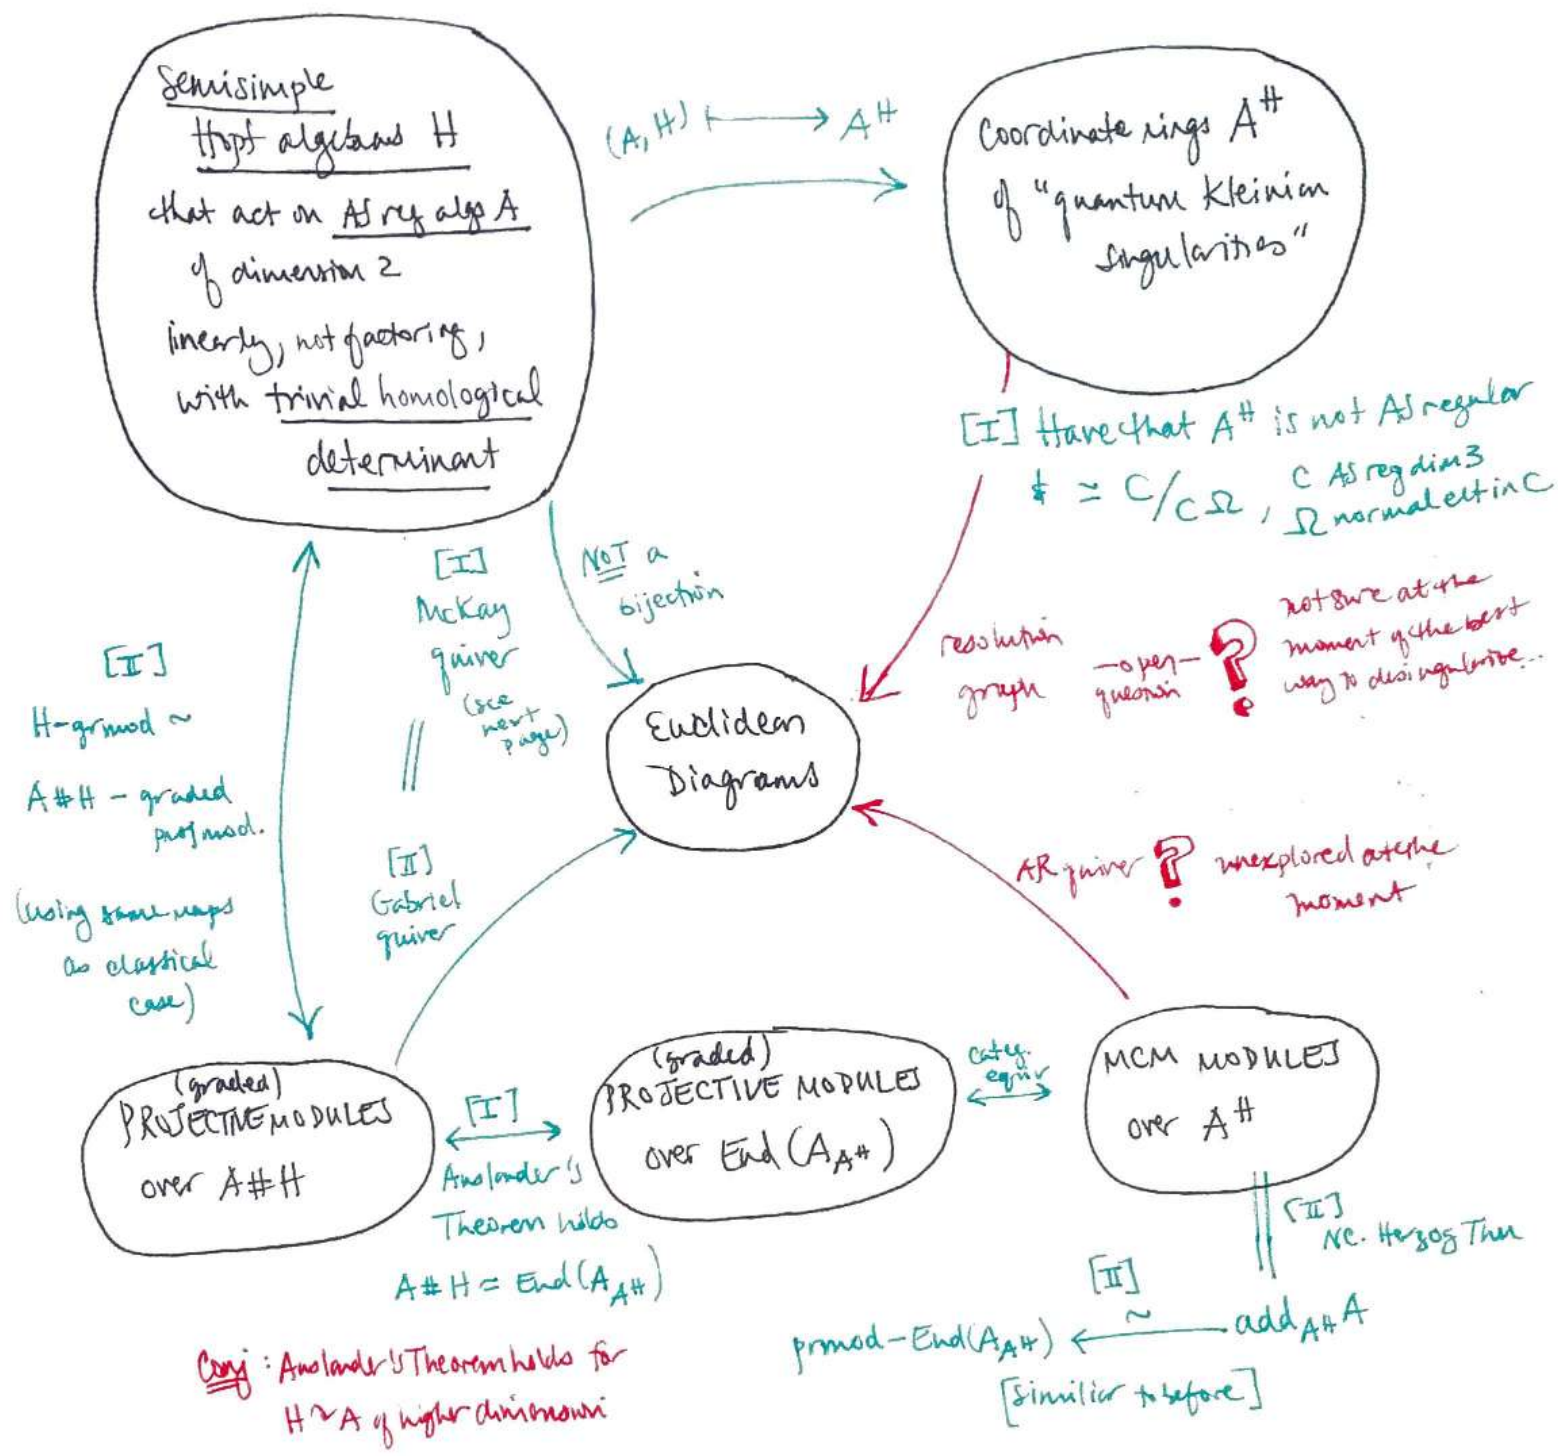 Semisimple
Hopf algebras H
that act on AS reg algs A
of dimension 2
linearly, not factoring,
with trivial homological
determinant
(A, H) ⟼ A^H
Coordinate rings A^H
of "quantum Kleinian
singularities"
[I] Have that A^H is not AS regular
& ≃ C/CΩ, C AS reg dim 3
Ω normal elt in C
[I]
McKay
quiver
(see
next
page)
NOT a
bijection
resolution
graph
-open-
question
?
not sure at the
moment of the best
way to desingularize...
[II]
H-grmod ~
A#H - graded
proj mod.
(using same maps
as classical
case)
Euclidean
Diagrams
[II]
Gabriel
quiver
AR quiver ? unexplored at the
moment
(graded)
PROJECTIVE MODULES
over A#H
[I]
Auslander's
Theorem holds
A#H ≃ End(A_{A^H})
(graded)
PROJECTIVE MODULES
over End(A_{A^H})
categ.
equiv
MCM MODULES
over A^H
[II]
NC. Herzog Thm
[II]
prmod-End(A_{A^H}) ⟵~ add_{A^H} A
[similar to before]
Conj: Auslander's Theorem holds for
H ↷ A of higher dimension